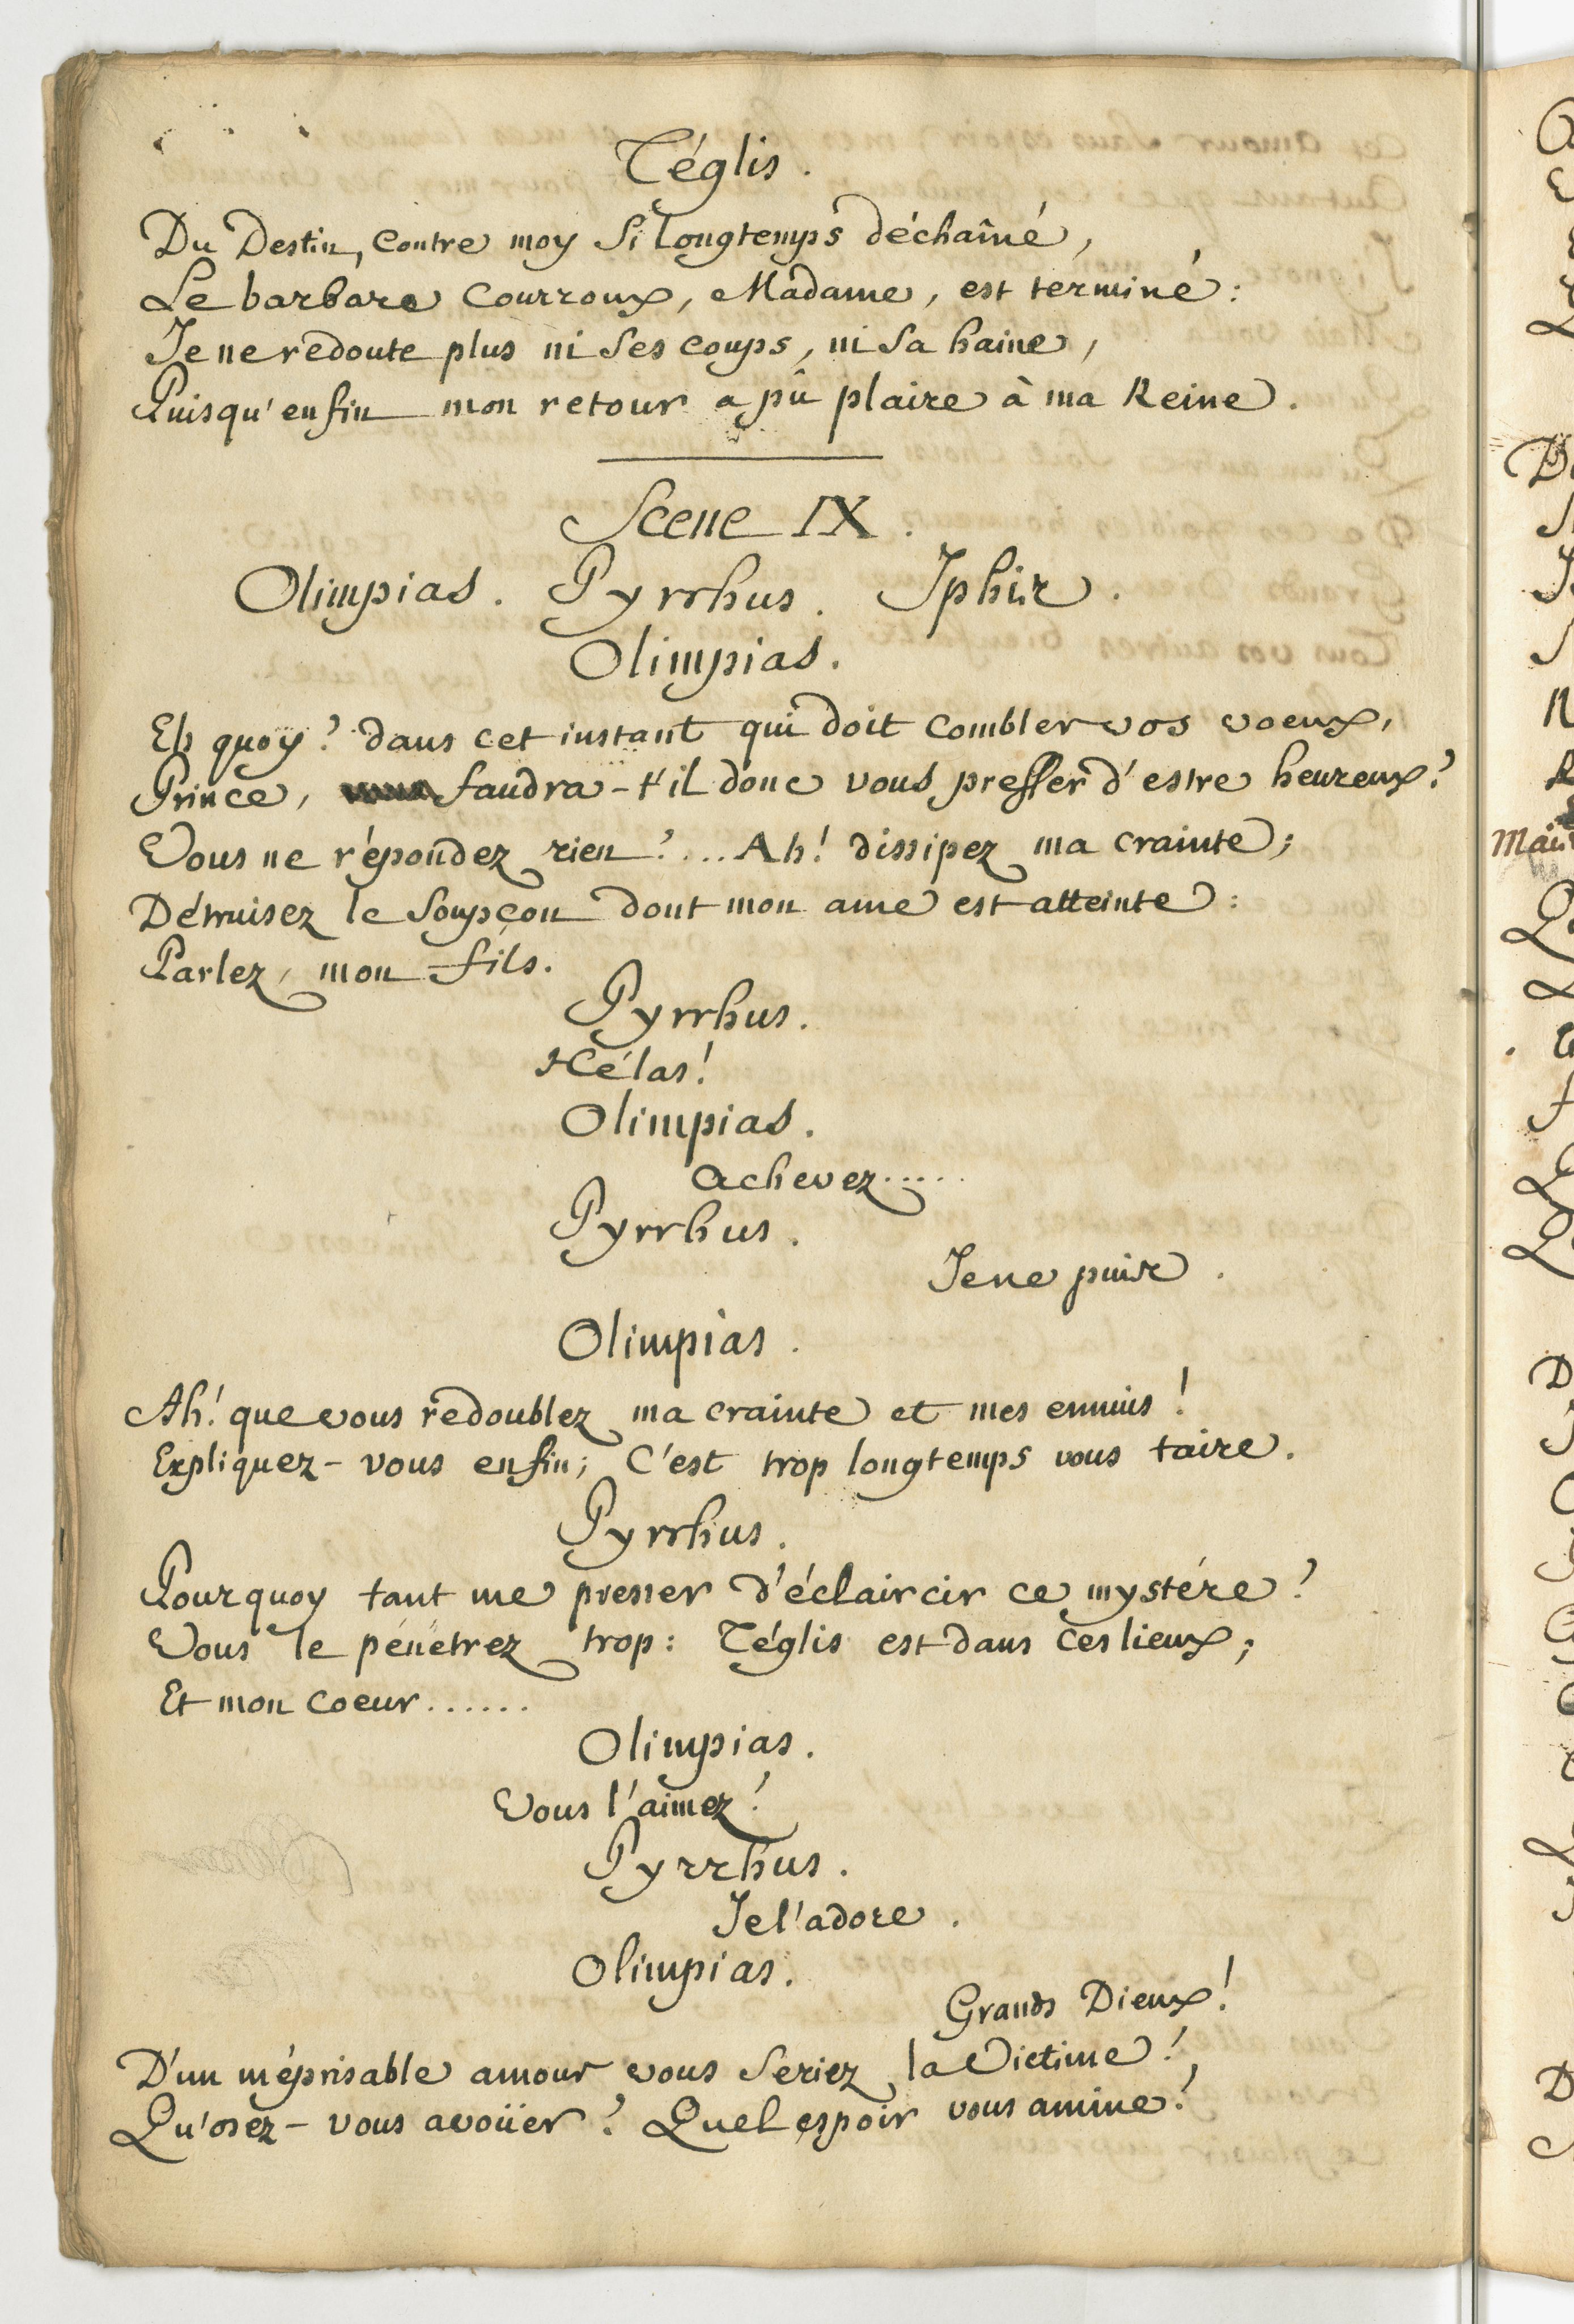 Téglis.
Du Destin, contre moy si longtemps déchaîné,
Le barbare courroux, Madame, est terminé:
Je ne redoute plus ni ses coups, ni sa haine,
Puisqu'enfin mon retour a pû plaire à ma Reine.
Scene IX.
Olimpias. Pyrrhus. Iphis.
Olimpias.
Eh quoy? dans cet instant qui doit combler vos voeux,
Prince, faudra-t'il donc vous presser d'estre heureux?
Vous ne répondez rien?... Ah! dissipez ma crainte;
Détruisez le soupçon dont mon ame est atteinte:
Parlez, mon fils.
Pyrrhus.
Hélas!
Olimpias.
achevez.....
Pyrrhus.
Je ne puis.
Olimpias.
Ah! que vous redoublez ma crainte et mes ennuis!
Expliquez-vous enfin; C'est trop longtemps vous taire.
Pyrrhus.
Pourquoy tant me presser d'éclaircir ce mystére?
Vous le pénétrez trop: Téglis est dans ces lieux;
Et mon coeur......
Olimpias.
Vous l'aimez!
Pyrrhus.
Je l'adore.
Olimpias.
Grands Dieux!
D'un méprisable amour vous seriez la Victime!
Qu'osez-vous avoüer? Quel espoir vous anime?